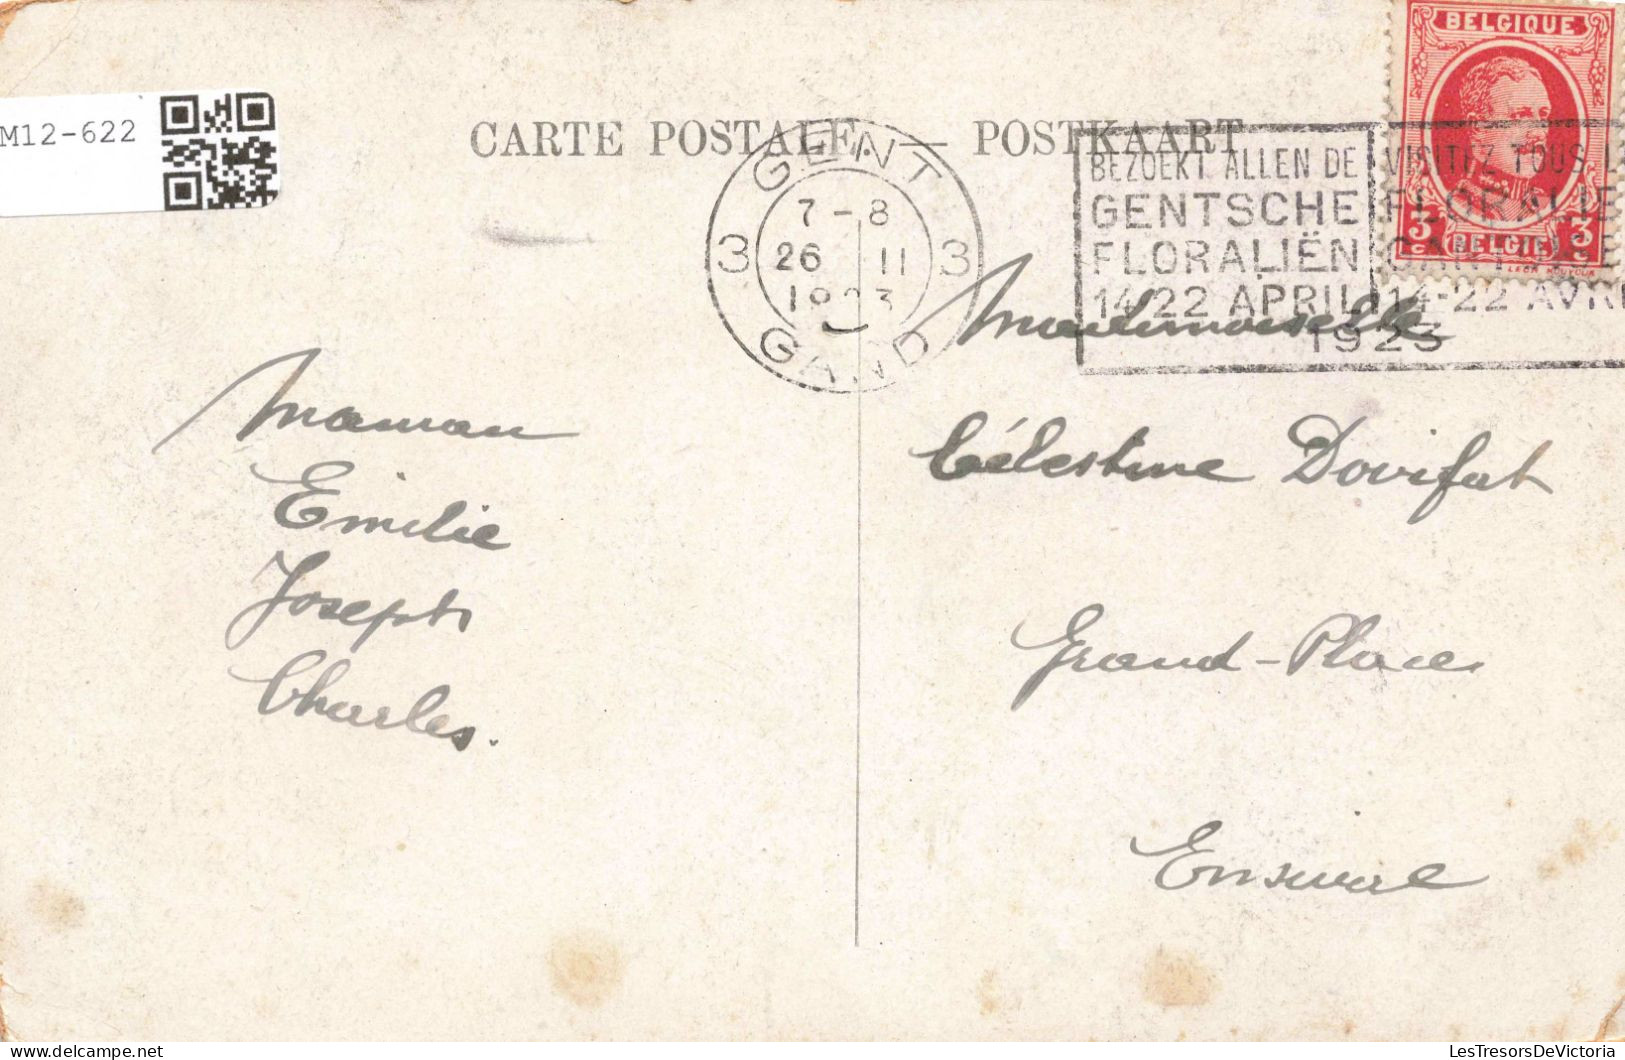 M12-622
CARTE POSTALE — POSTKAART
BELGIQUE
3 c BELGIË 3 c
GENT
7-8
3 26 II 3
1923
GAND
BEZOEKT ALLEN DE
GENTSCHE
FLORALIËN
14/22 APRIL
VISITEZ TOUS L
FLORALIE
14-22 AVRI
1923
Mademoiselle
Célestine Dovifat
Grand-Place
Ensival
Maman
Emilie
Joseph
Charles.
LesTresorsDeVictoria